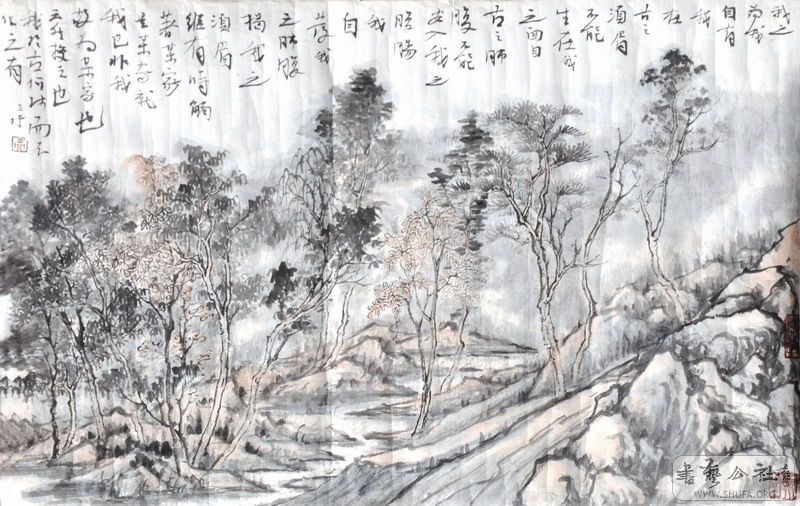 我之
为我
自有
我
在
古之
須眉
不能
生在我
之面目
古之肺
腹不能
安入我之
腹腸
我
自
發我
之肺腹
揭我之
須眉
縱有時觸
著某家
是某家就
我也非我
故为某家也
天然授之也
我於古何師而不
化之有
書藝公社
WWW.SHUFA.ORG